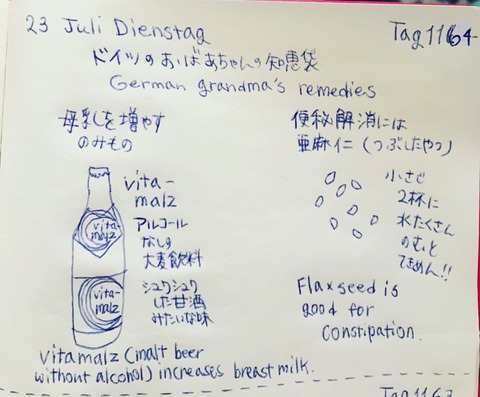 23 Juli Dienstag
Tag 1164
ドイツのおばあちゃんの知恵袋
German grandma's remedies
母乳を増やす
のみもの
vita-
malz
アルコール
なしの
大麦飲料
シュワシュワ
した甘酒
みたいな味
vita
malz
vita-
malz
vitamalz (malt beer
without alcohol) increases breast milk.
便秘解消には
亜麻仁(つぶしたやつ)
小さじ
2杯に
水たくさん
のむと
てきめん!!
Flaxseed is
good for
constipation.
Tag 1163